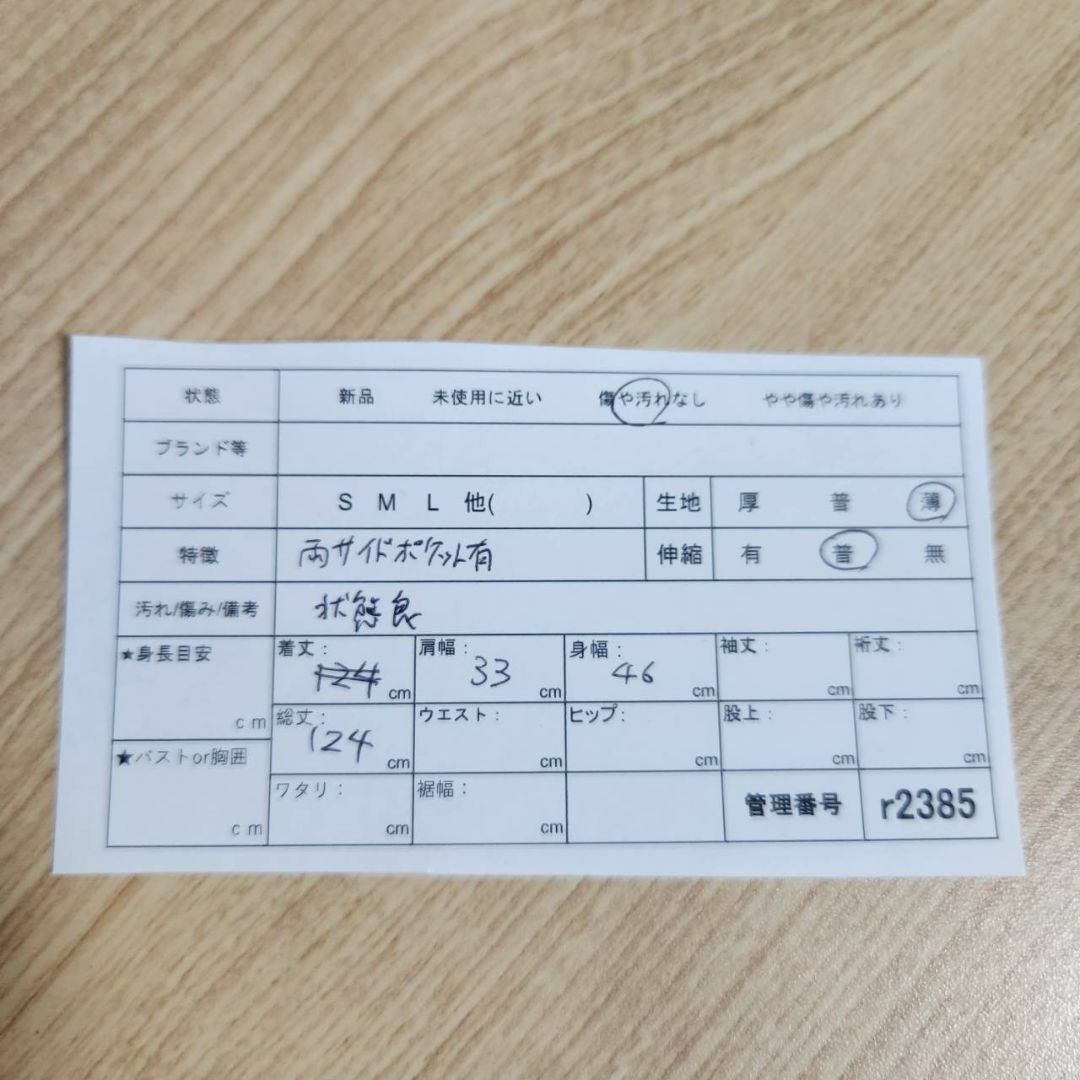 状態 新品 未使用に近い 傷や汚れなし やや傷や汚れあり
ブランド等
サイズ S M L 他( ) 生地 厚 普 薄
特徴 両サイドポケット有 伸縮 有 普 無
汚れ/傷み/備考 状態良
★身長目安 cm
着丈: 124 cm 肩幅: 33 cm 身幅: 46 cm 袖丈: cm 裄丈: cm
総丈: 124 cm ウエスト: cm ヒップ: cm 股上: cm 股下: cm
★バストor胸囲 cm
ワタリ: cm 裾幅: cm 管理番号 r2385